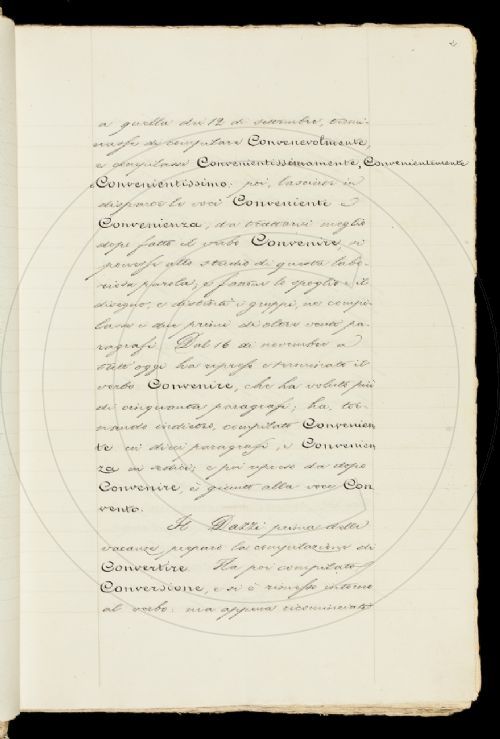 a quella dei 12 di settembre, termi-
nasse di compilare Convenevolmente,
e compilasse Convenientissimamente, Convenientemente
Convenientissimo: poi, lasciate in
disparte le voci Conveniente e
Convenienza, da trattarsi meglio
dopo fatto il verbo Convenire, si
ponesse allo studio di questa labo-
riosa parola, e fattone lo spoglio e il
disegno, e distinti i gruppi, ne compi-
lasse i due primi di oltre venti pa-
ragrafi. Dal 16 di novembre a
tutt'oggi ha ripreso e terminato il
verbo Convenire, che ha voluto più
di cinquanta paragrafi; ha, tor-
nando indietro, compilato Convenien
te in dieci paragrafi, e Convenien
za in sedici; e poi ripreso da dopo
Convenire, è giunto alla voce Con
vento.
Il Dazzi prima delle
vacanze, preparò la compilazione di
Convertire. Ha poi compilato
Conversione, e si è rimesso intorno
al verbo: ma appena ricominciato